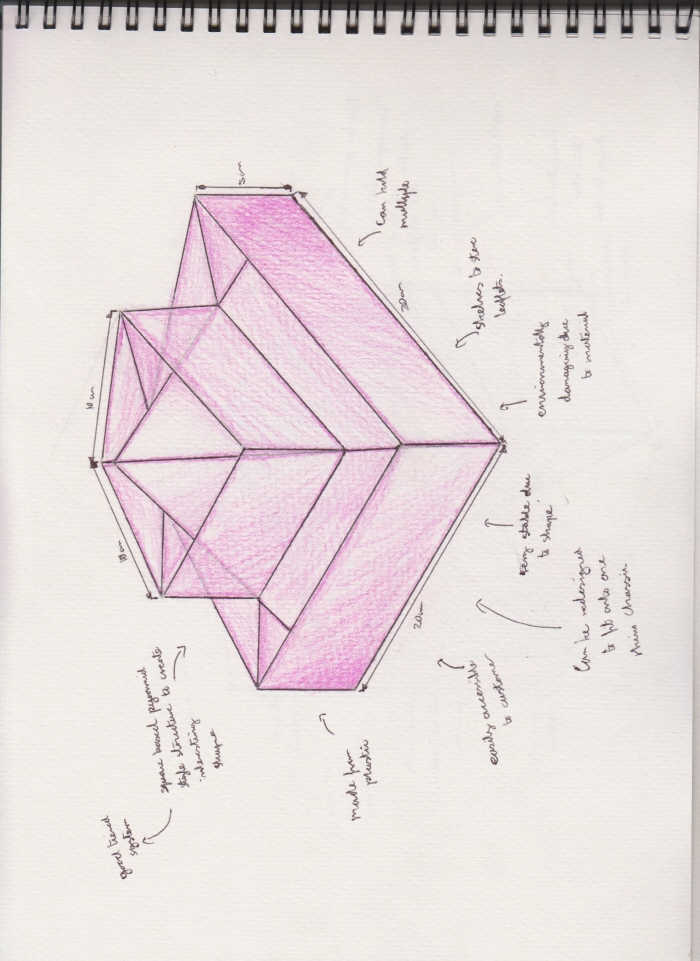 good tiered
system
square based pyramid
style structure to create
interesting
shape
made from
plastic
easily accessible
to customer
Can be redesigned
to fit onto one
rhino chassis
very stable due
to shape
environmentally
damaging due
to material
shelves to store
leaflets.
can hold
multiple
5cm
20cm
20cm
10cm
10cm